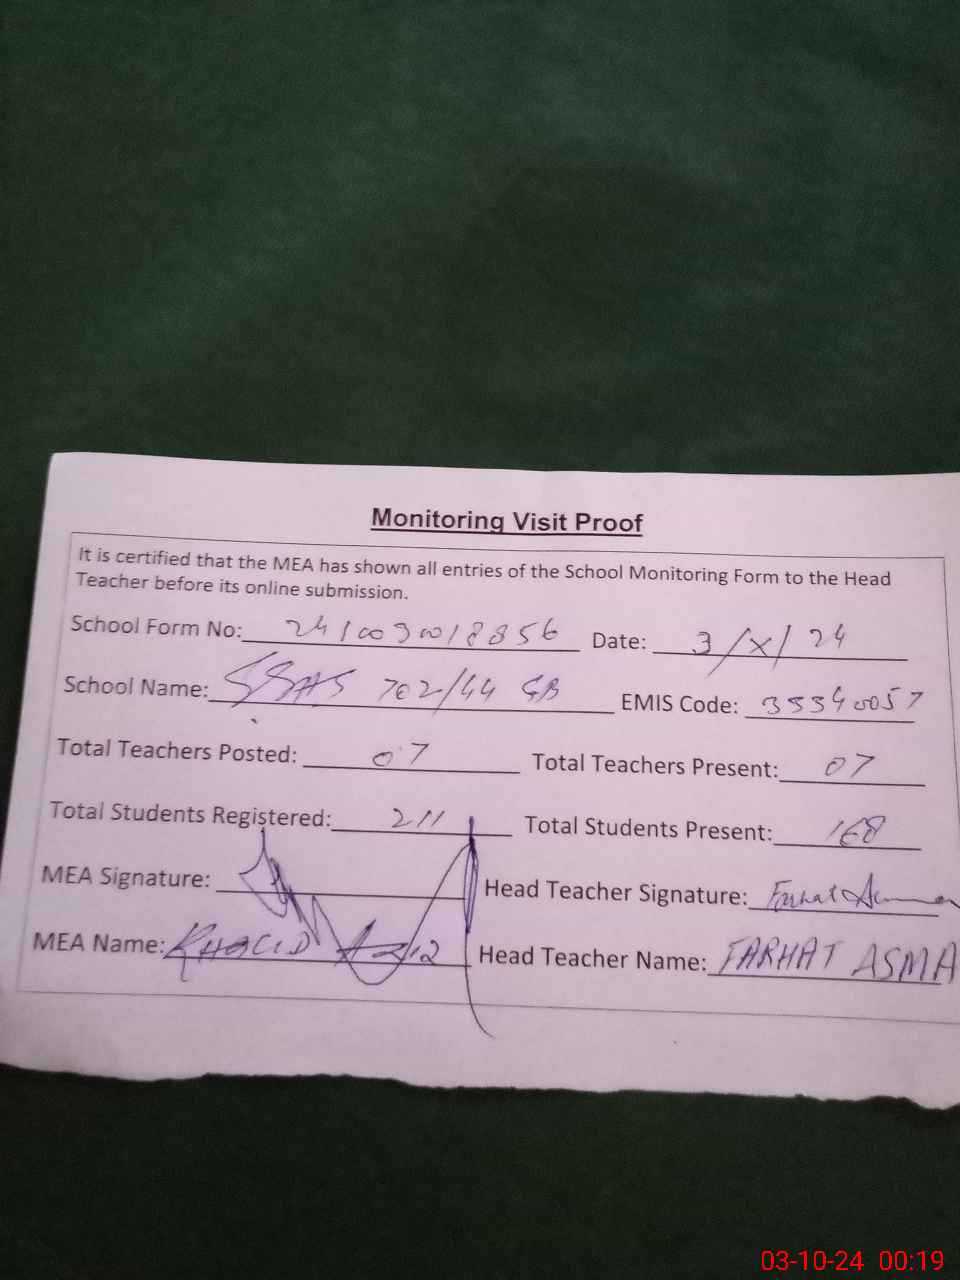 Monitoring Visit Proof
It is certified that the MEA has shown all entries of the School Monitoring Form to the Head
Teacher before its online submission.
School Form No: Date: 3/X/24
School Name: 702/44 GB EMIS Code:
Total Teachers Posted: 07 Total Teachers Present: 07
Total Students Registered: 211 Total Students Present: 168
MEA Signature: Head Teacher Signature: Farhat
MEA Name: Head Teacher Name: FARHAT ASMA
03-10-24 00:19